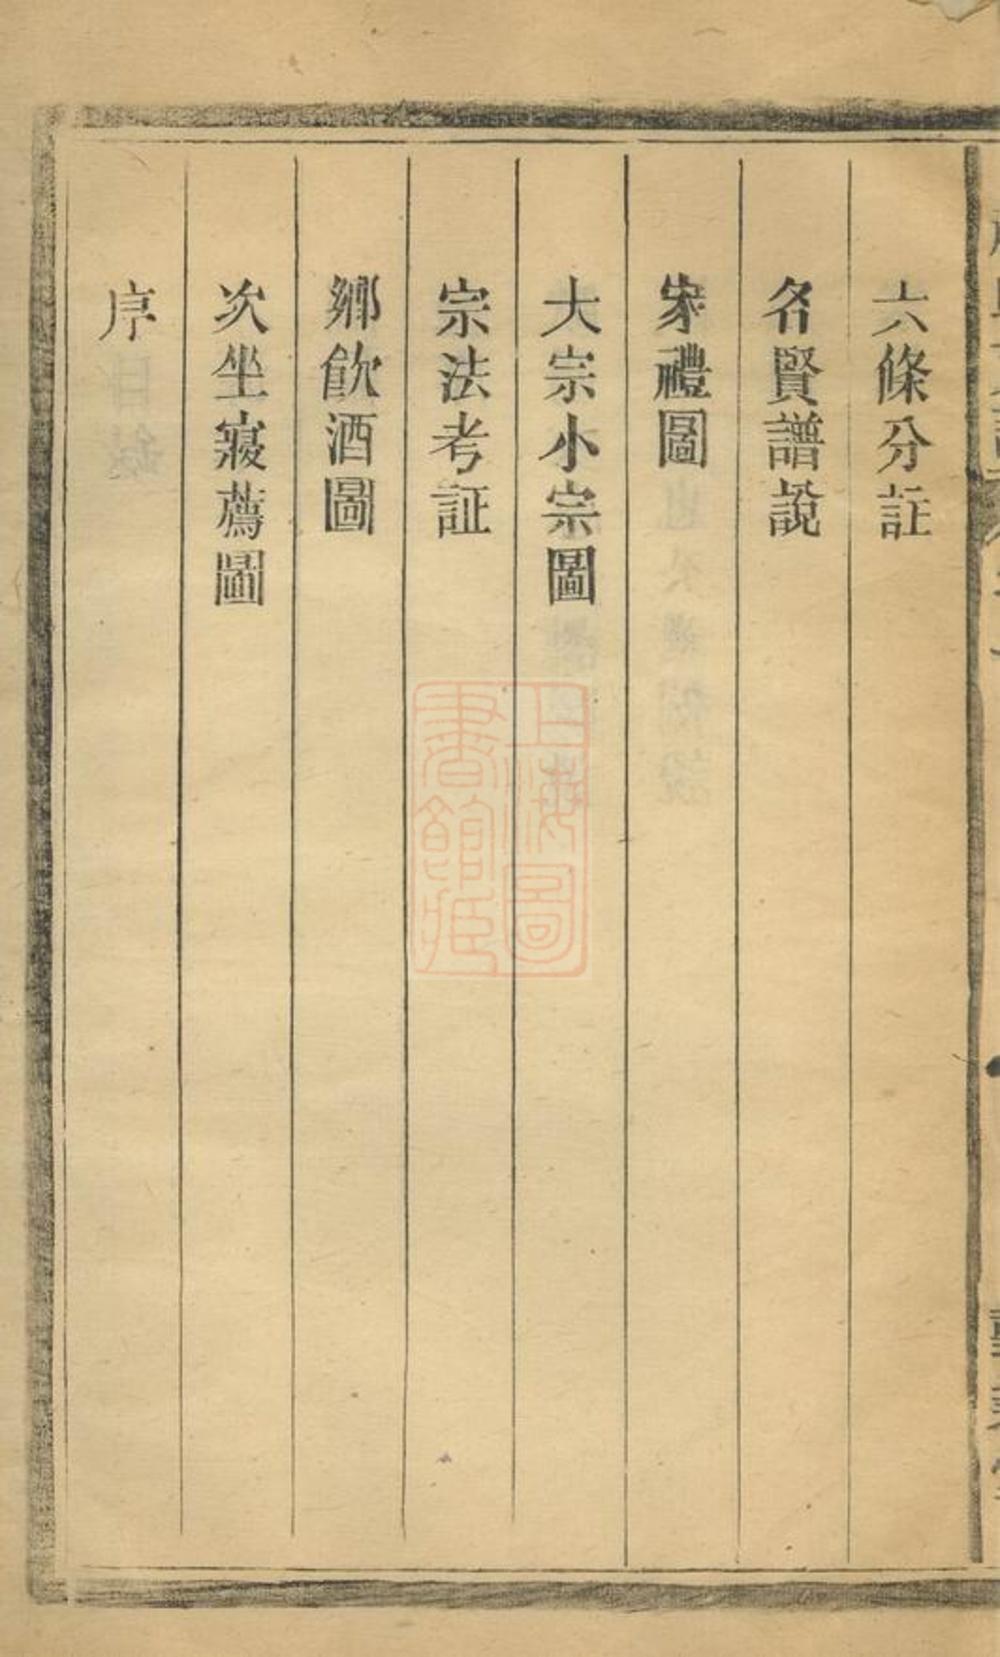 六條分註
名賢譜說
家禮圖
大宗小宗圖
宗法考証
鄉飲酒圖
次坐寢薦圖
序
上海圖書館藏